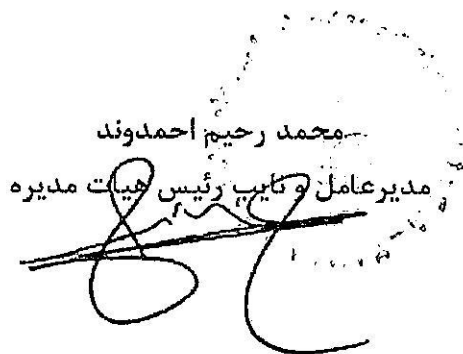 محمد رحیم احمدوند
مدیرعامل و نایب رئیس هیات مدیره